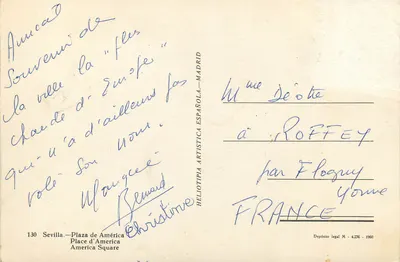 Amical
Souvenir de
la ville la "plus
chaude d'Europe"
qui n'a d'ailleurs pas
volé son nom.
Bernard
Christine
130 Sevilla.—Plaza de América
Place d'America
America Square
HELIOTIPIA ARTISTICA ESPAÑOLA—MADRID
Mme
à ROFFEY
par Flogny
Yonne
FRANCE